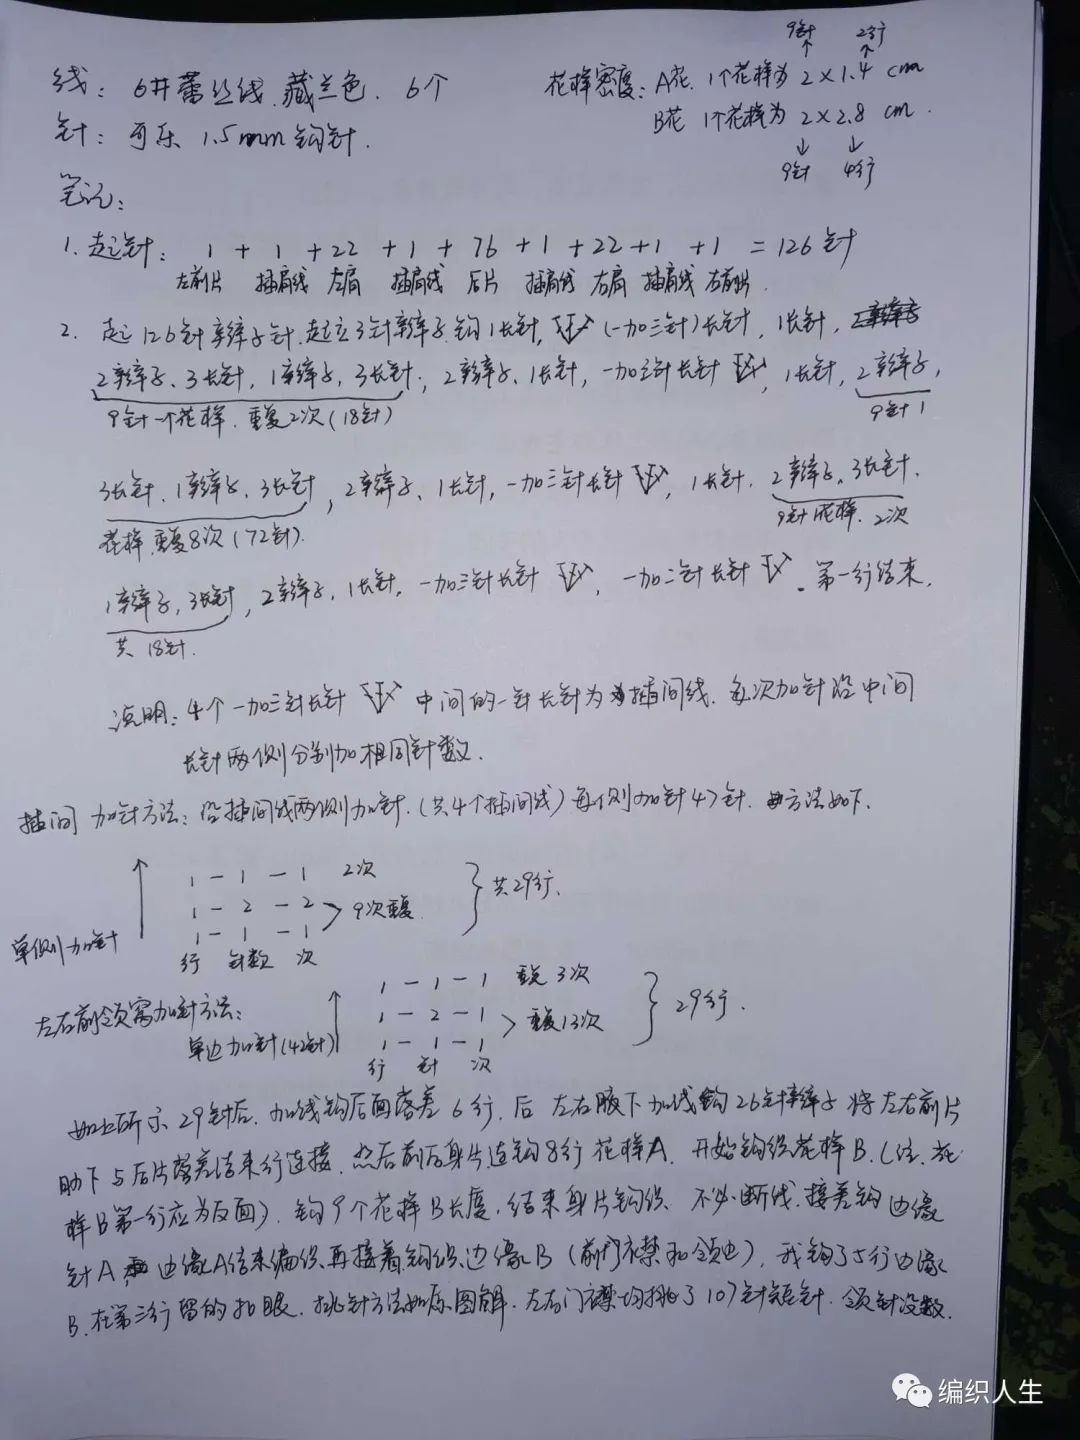 线: 6#蕾丝线.藏兰色. 6个
针: 可乐 1.5mm钩针.
9针 2行
花样密度: A花. 1个花样为 2×1.4 cm
B花 1个花样为 2×2.8 cm.
9针 4行
笔记:
1. 起针: 1 + 1 + 22 + 1 + 76 + 1 + 22 + 1 + 1 = 126针
左前片 插肩线 左肩 插肩线 后片 插肩线 右肩 插肩线 右前片.
2. 起126针辫子针.起立3针辫子.钩1长针, (一加三针)长针, 1长针,
2辫子、3长针, 1辫子, 3长针, 2辫子、1长针, 一加三针长针 , 1长针, 2辫子,
9针一个花样. 重复2次(18针) 9针1
3长针、1辫子、3长针, 2辫子、1长针, 一加三针长针 , 1长针. 2辫子, 3长针.
花样.重复8次(72针). 9针1花样. 2次
1辫子, 3长针, 2辫子, 1长针, 一加三针长针 , 一加二针长针 . 第一行结束.
共 18针.
说明: 4个一加三针长针 中间的一针长针为插间线. 每次加针沿中间
长针两侧分别加相同针数.
插间 加针方法: 沿插间线两侧加针. (共4个插间线) 每侧加针47针. 方法如下.
1 - 1 - 1 2次
1 - 2 - 2
1 - 1 - 1 9次重复 共29行.
单侧加针
行 针数 次
左右前领窝加针方法:
单边加针(42针)
1 - 1 - 1 重复3次
1 - 2 - 1
1 - 1 - 1 重复13次 29行.
行 针 次
如上所示 29针后. 加线钩后面落差6行. 后 左右腋下加线钩26针辫子 将左右前片
肋下与后片落差结束行连接. 然后前后身片连钩8行花样A. 开始钩织花样B.(注. 花
样B第一行应为反面). 钩9个花样B长度. 结束身片钩织. 不必断线.接着钩边缘
针A. 边缘A结束编织.再接着钩织边缘B (前门衣襟和领边). 我钩了5行边缘
B.在第三行留的扣眼. 挑针方法如原图解. 左右门襟均挑了107针短针. 领针没数.
编织人生